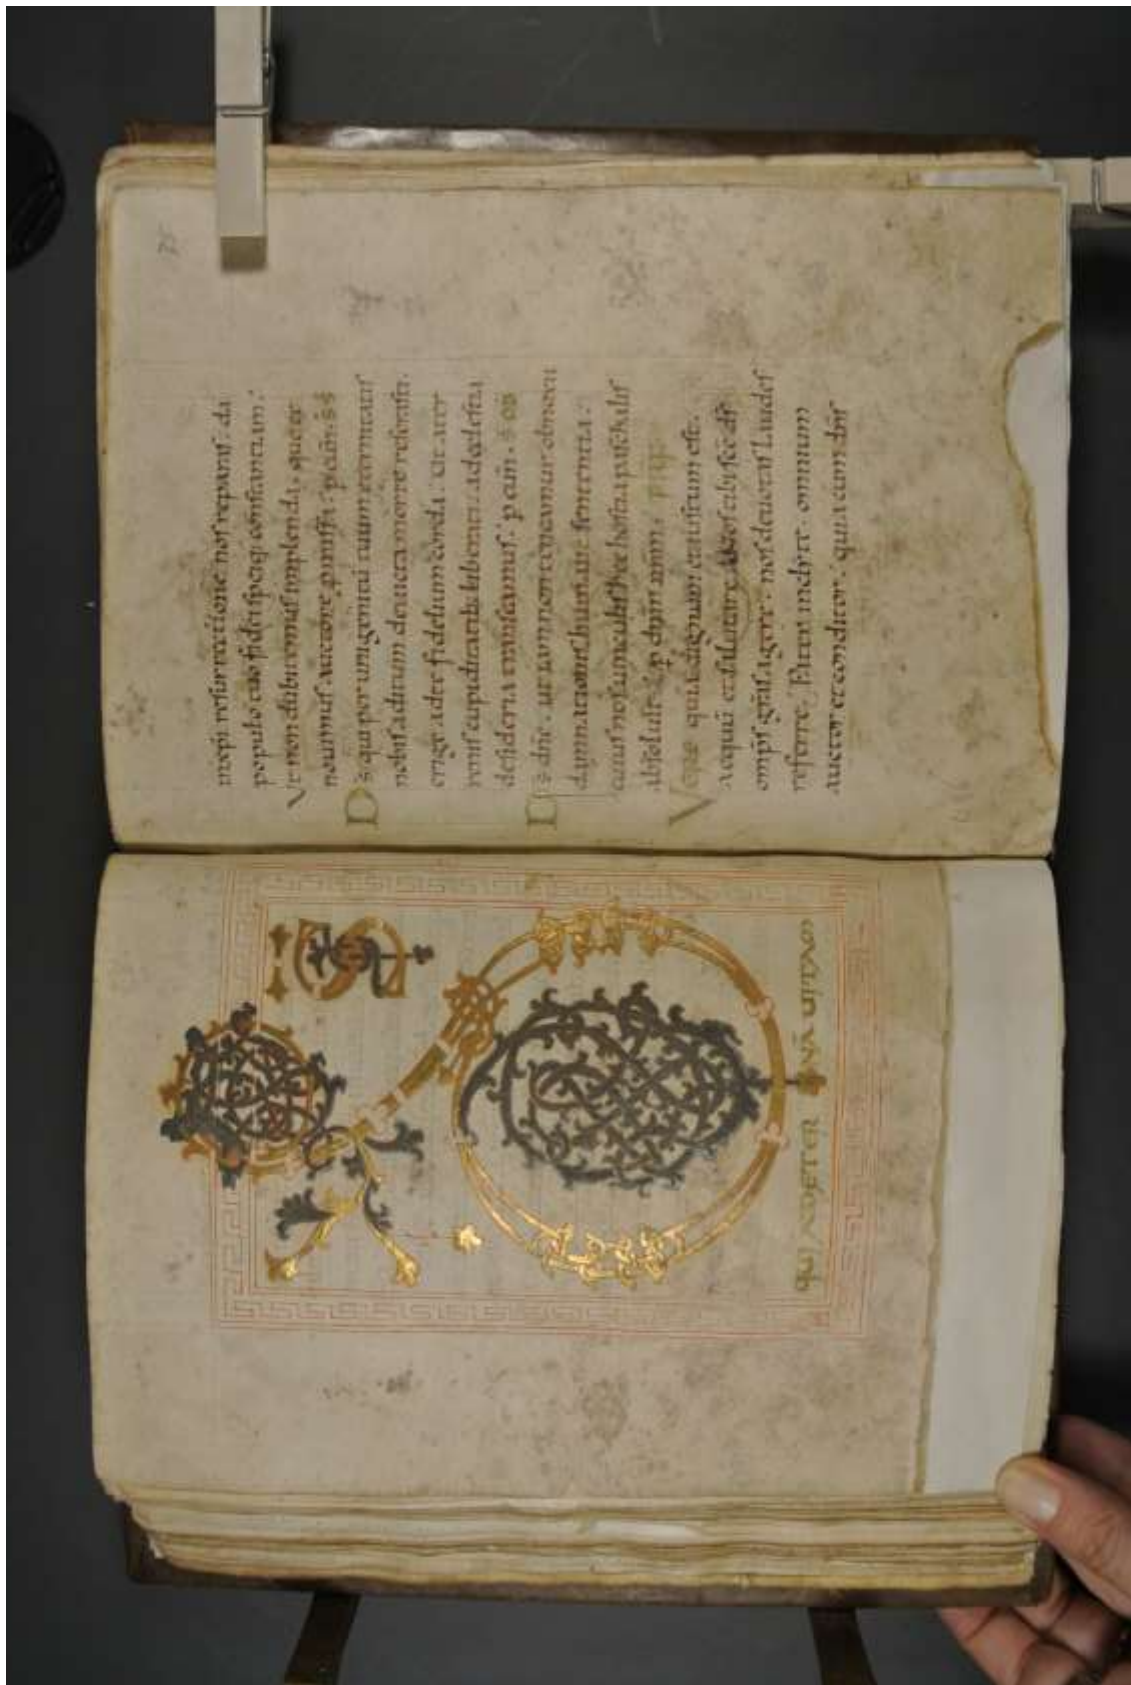 D
QUI AD ETER NĀ UITAM
inxpi resurrectione nos reparas· da
populo tuo fidei speiq; constantiam·
Ut non dubitemus implenda· que te
nouimus auctore pmissa· p eūn· SS
Ds qui per unigenitū tuum eternitatis
nobis aditum deuicta morte reserasti·
erige ad te fidelium corda· ut a ter
renis cupiditatib; liberati· ad celestia
desideria transeamus· p eūn·
Ds dne· ut iam non teneamur obnoxii
damnationis humane sententia·
cuius nos uinculis hec hostia paschalis
absoluit· p dnm nrm·
Vere quia dignum et iustum est·
aequū et salutare· Nos tibi sce ds
omps gras agere· nos deuotas laudes
referre· Pater inclite· omnium
auctor et conditor· quia cum dns